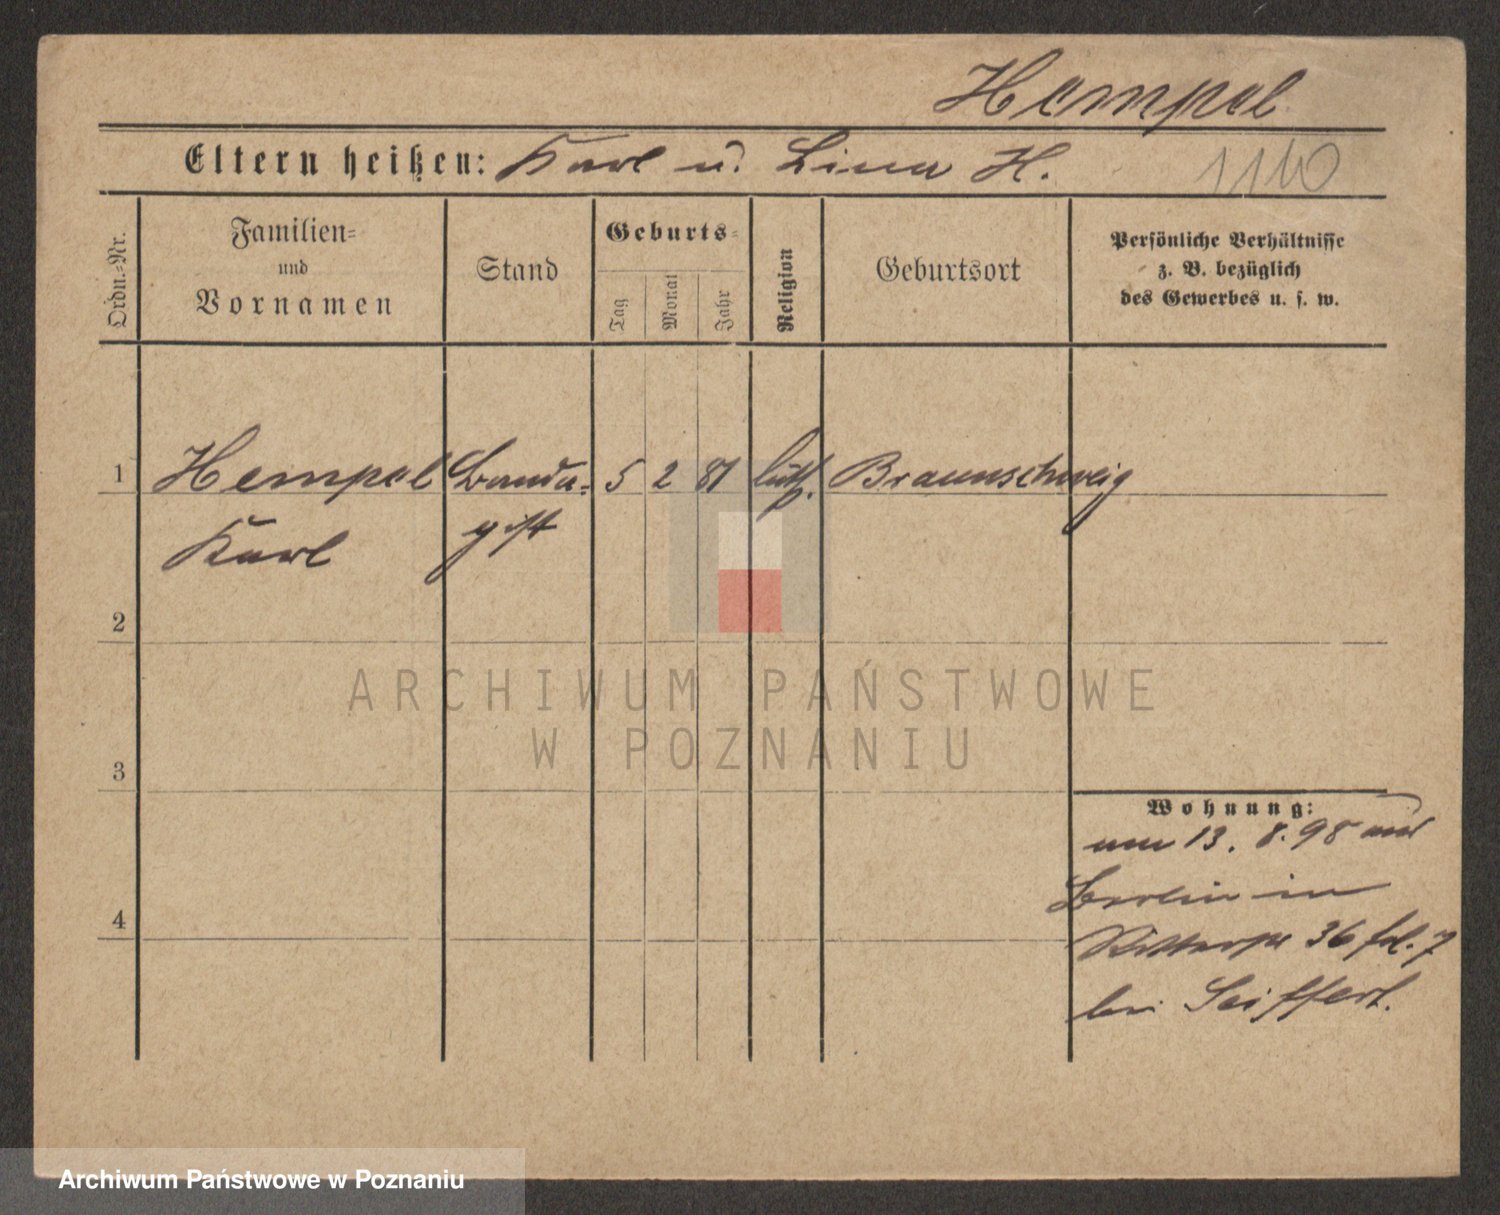 Hempel
Eltern heißen: Karl u. Lina H.
1110
Ordn.=Nr.
Familien=
und
Vornamen
Stand
Geburts=
Tag
Monat
Jahr
Religion
Geburtsort
Persönliche Verhältnisse
z. B. bezüglich
des Gewerbes u. s. w.
1 Hempel Banda- 5 2 81 luth. Braunschweig
Karl gist
2
ARCHIWUM PAŃSTWOWE
W POZNANIU
3
Wohnung:
am 13. 8. 98 aus
Berlin in
4
Ritterstr 36 fdl. 7
bei Seiffert.
Archiwum Państwowe w Poznaniu